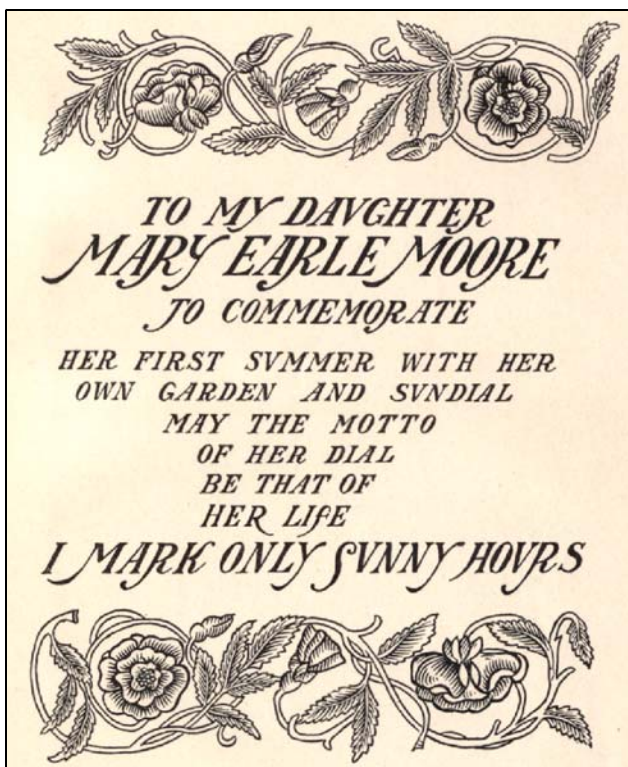 TO MY DAVGHTER
MARY EARLE MOORE
TO COMMEMORATE
HER FIRST SVMMER WITH HER
OWN GARDEN AND SVNDIAL
MAY THE MOTTO
OF HER DIAL
BE THAT OF
HER LIFE
I MARK ONLY SVNNY HOVRS